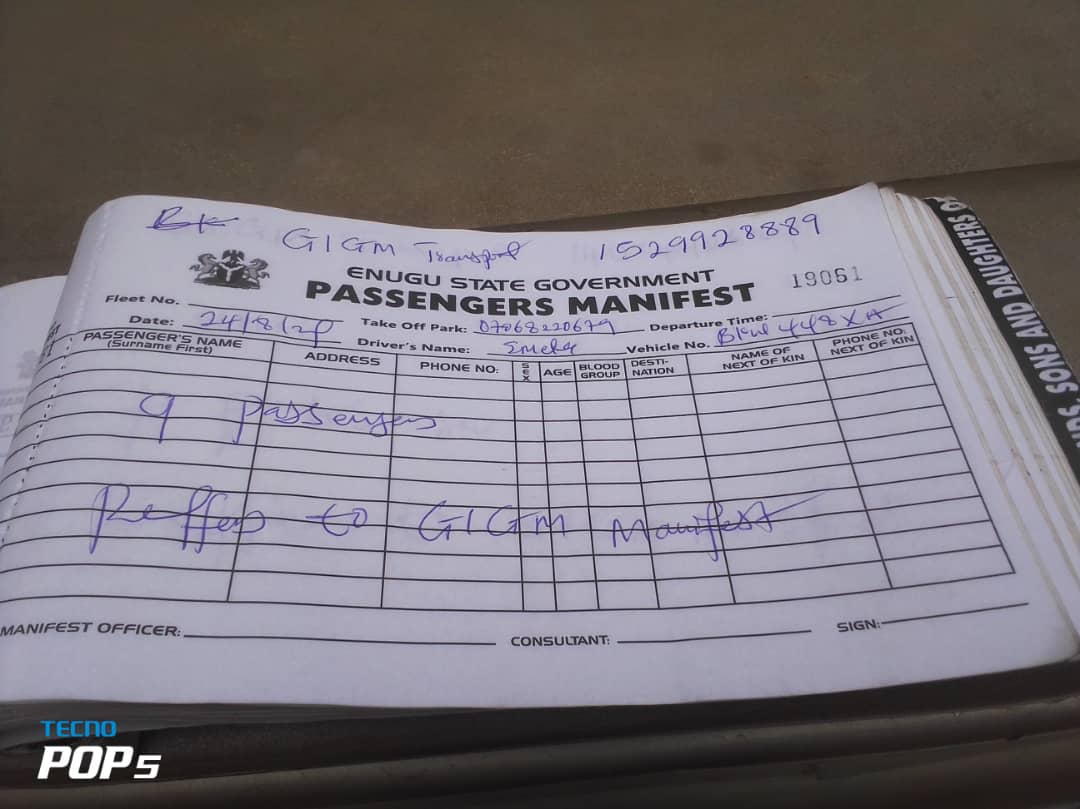 GIGM Transport 1529928889
ENUGU STATE GOVERNMENT
PASSENGERS MANIFEST
19061
Fleet No.
Date: 24/8/21 Take Off Park: 07068220679 Departure Time:
Driver's Name: Emeka Vehicle No. 448XA
PASSENGER'S NAME
(Surname First)
ADDRESS
PHONE NO:
SEX
AGE
BLOOD GROUP
DESTI-
NATION
NAME OF
NEXT OF KIN
PHONE NO.
NEXT OF KIN
9 Passengers
Reffer to GIGM Manifest
MANIFEST OFFICER: CONSULTANT: SIGN:
SONS AND DAUGHTERS
TECNO
POP 5